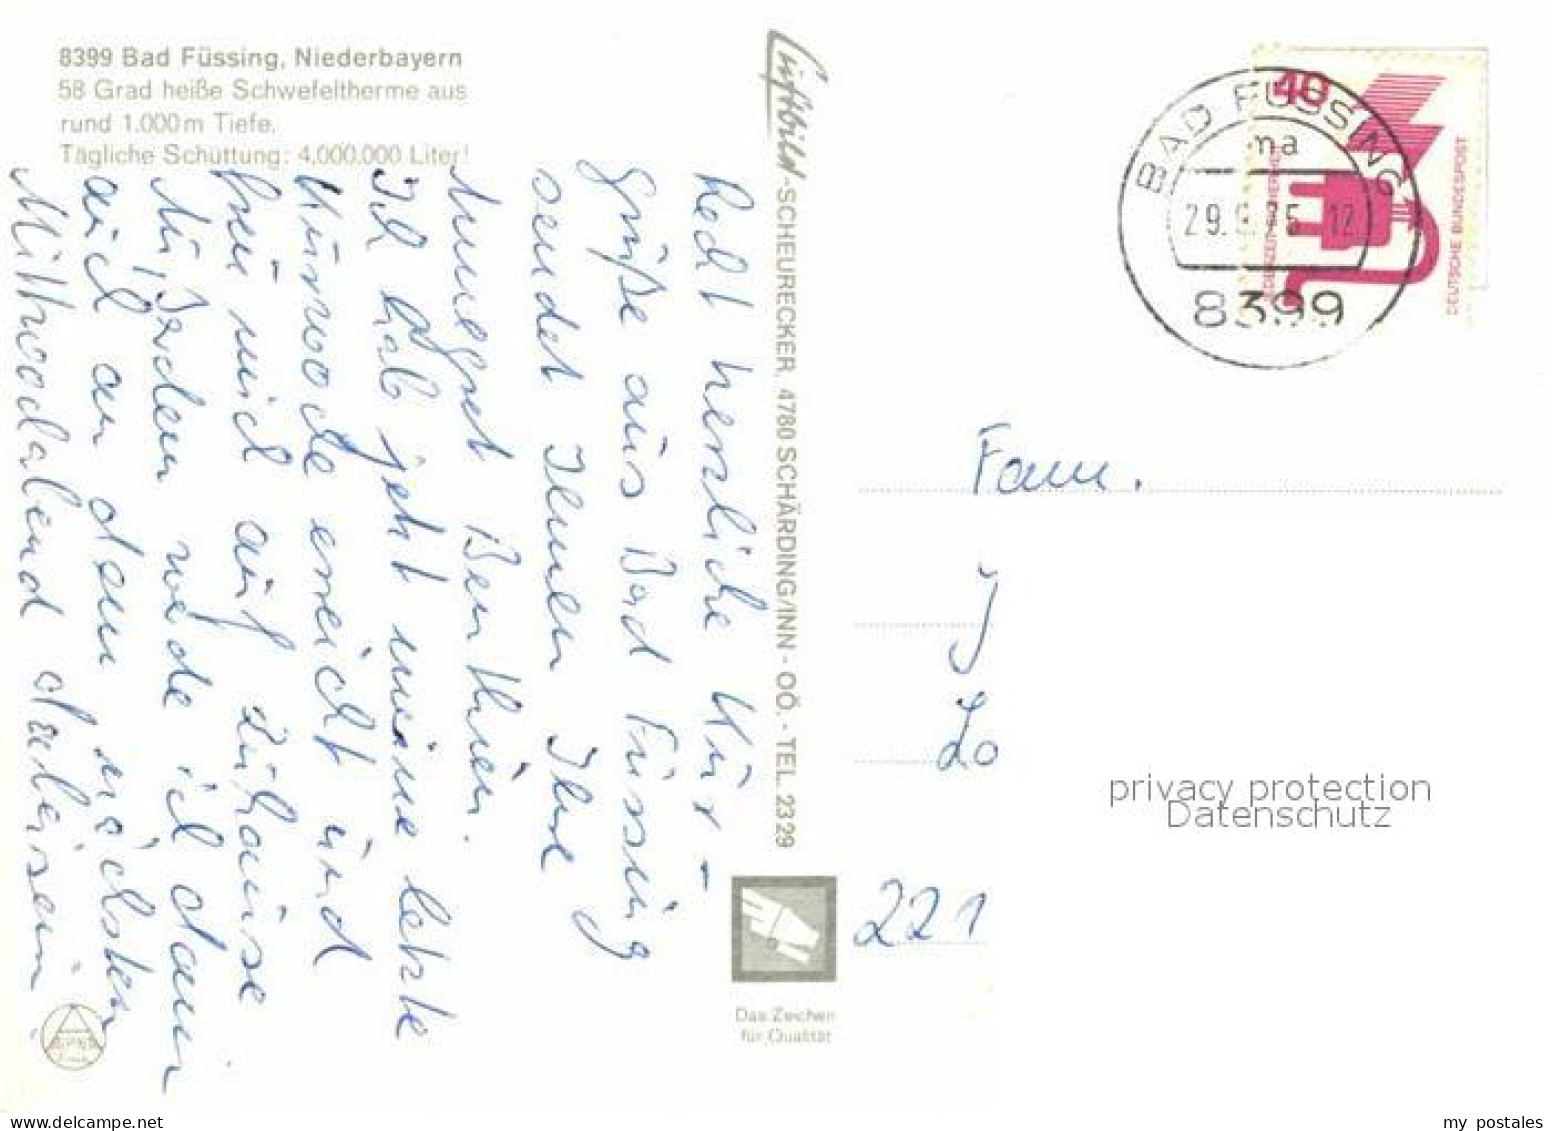 8399 Bad Füssing, Niederbayern
58 Grad heiße Schwefeltherme aus
rund 1.000m Tiefe.
Tägliche Schüttung: 4,000.000 Liter!
Recht herzliche Kur-
grüße aus Bad Füssing
sendet Ihnen Ihre
Annegret Bentheim.
Ich hab jetzt meine letzte
Kurwoche erreicht und
freu mich auf zuhause
Nu, Jrden werde ich dann
auch an dem nächsten
Mittwochabend dabeisein
Luftbild-SCHEURECKER, 4780 SCHÄRDING/INN - OÖ. - TEL. 2329
Das Zeichen
für Qualität
40
JEDERZEIT SICHERHEIT
DEUTSCHE BUNDESPOST
BAD FÜSSING
ma
29.9.75-12
8399
Fam.
J
Lo
221
privacy protection
Datenschutz
my postales